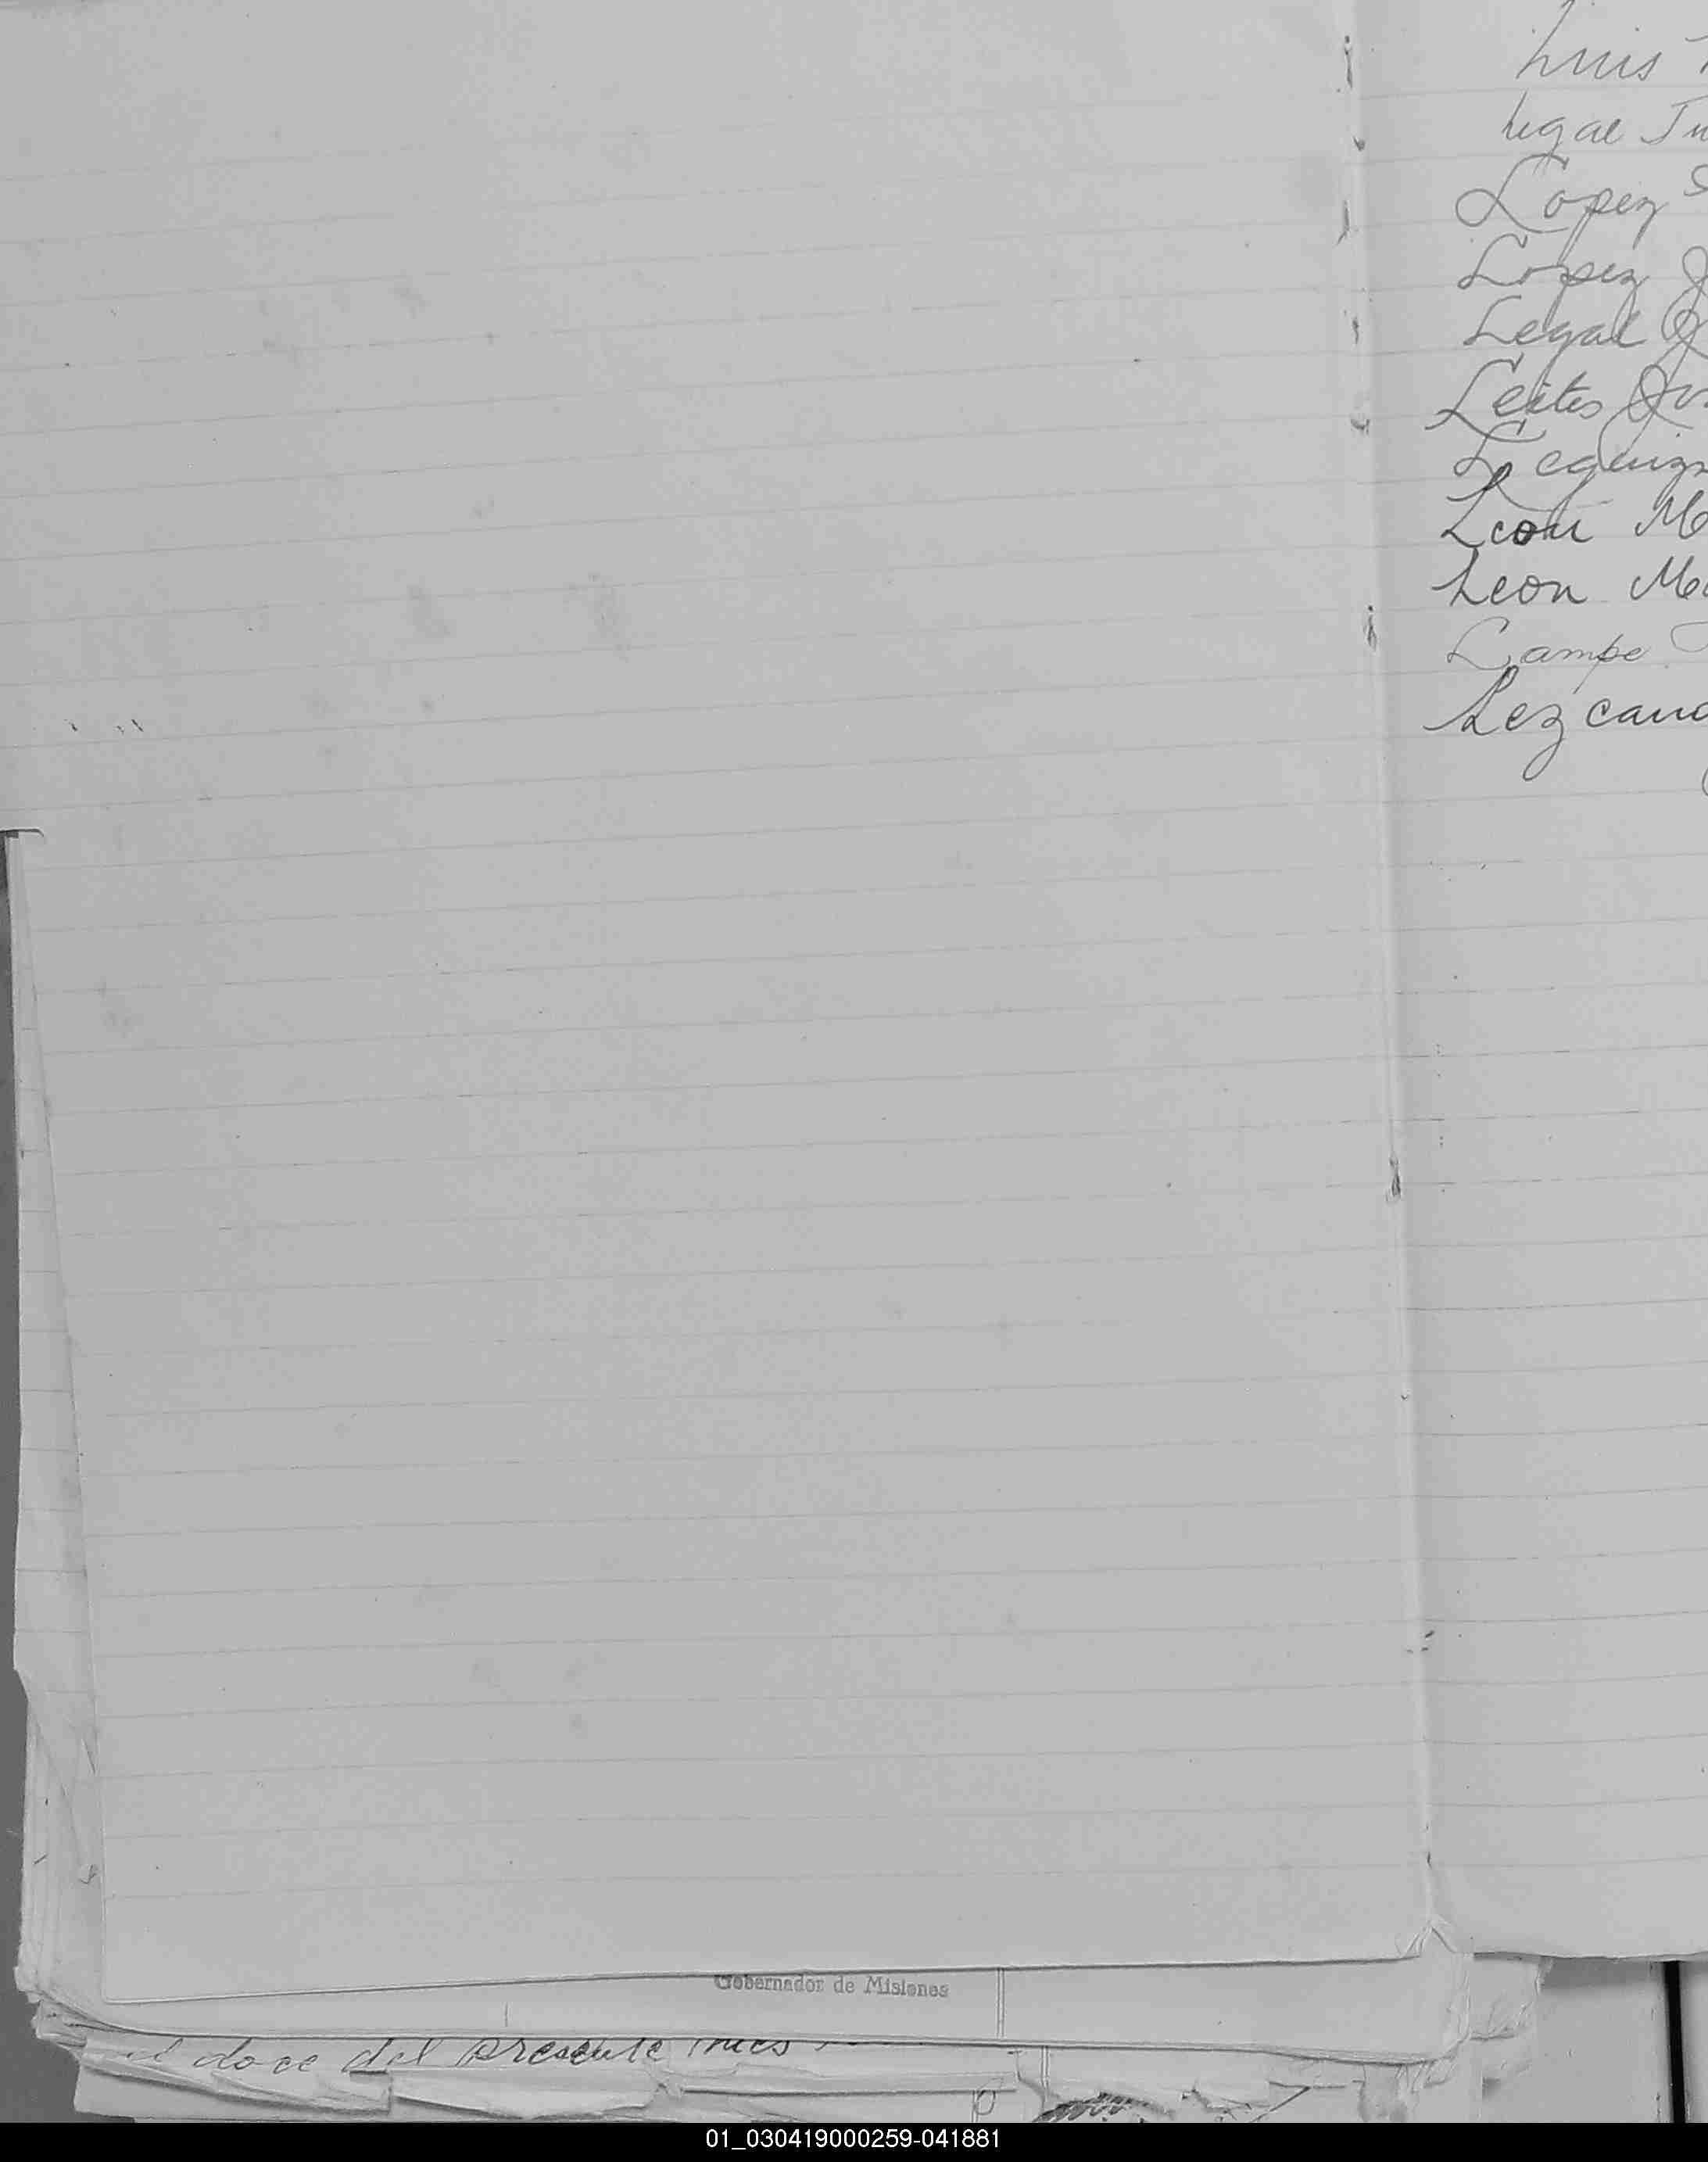 Luis
Legal
Lopez
Lopez
Legal
Leites
Leon
Leon
Lampe
Lezcano
Gobernador de Misiones
el doce del presente mes
01_030419000259-041881